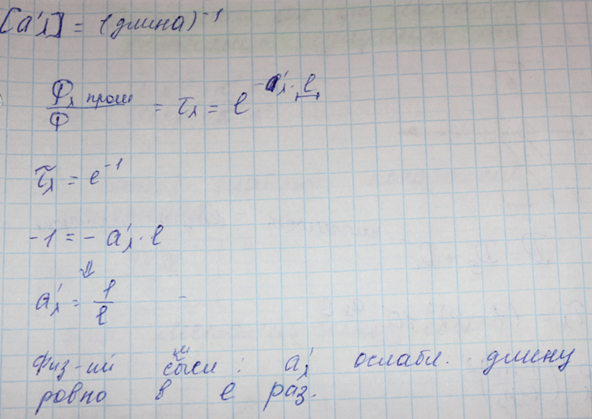 [a'λ] = (длина)⁻¹
Фλ прош / Ф = τλ = e^(-a'λ · l)
τλ = e⁻¹
-1 = - a'λ · l
⇓
a'λ = 1/l
Физ-ий смысл : a'λ ослабл. длину
ровно в e раз.